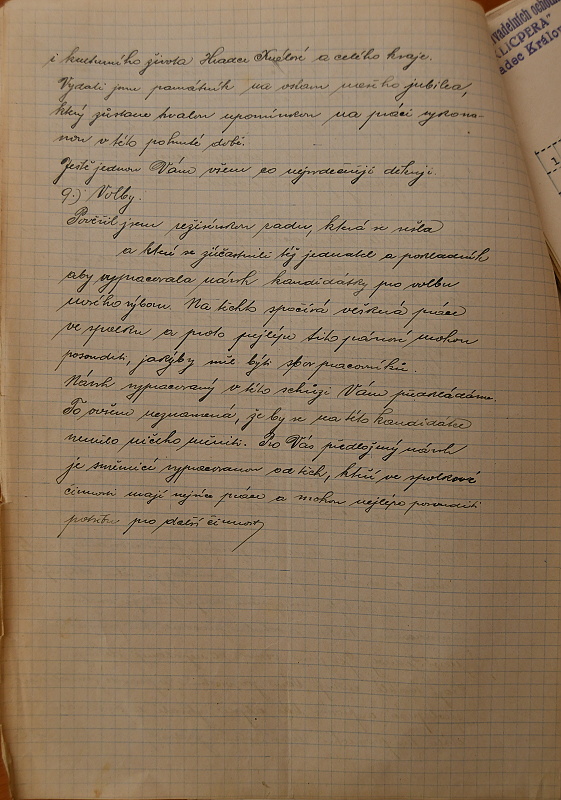 i kulturního života Hradce Králové a celého kraje.
Vydali jsme památník na oslavu našeho jubilea,
který zůstane trvalou upomínkou na práci vykona-
nou v této pohnuté době.
Ještě jednou Vám všem co nejsrdečněji děkuji.
9.) Volby.
Pověřil jsem režisérskou radu, která se sešla
a které se zúčastnili též jednatel a pokladník
aby vypracovala návrh kandidátky pro volbu
nového výboru. Na těchto spočívá veškerá práce
ve spolku a proto nejlépe tito pánové mohou
posouditi, jaký by měl býti sbor pracovníků.
Návrh vypracovaný v této schůzi Vám předkládáme.
To ovšem neznamená, že by se na této kandidátce
nemělo ničeho měniti. Pro Vás předložený návrh
je směrnicí vypracovanou od těch, kteří ve spolkové
činnosti mají nejvíce práce a mohou nejlépe posouditi
potřebu pro další činnost
vadelních ochotn
KLICPERA"
adec Králov
1